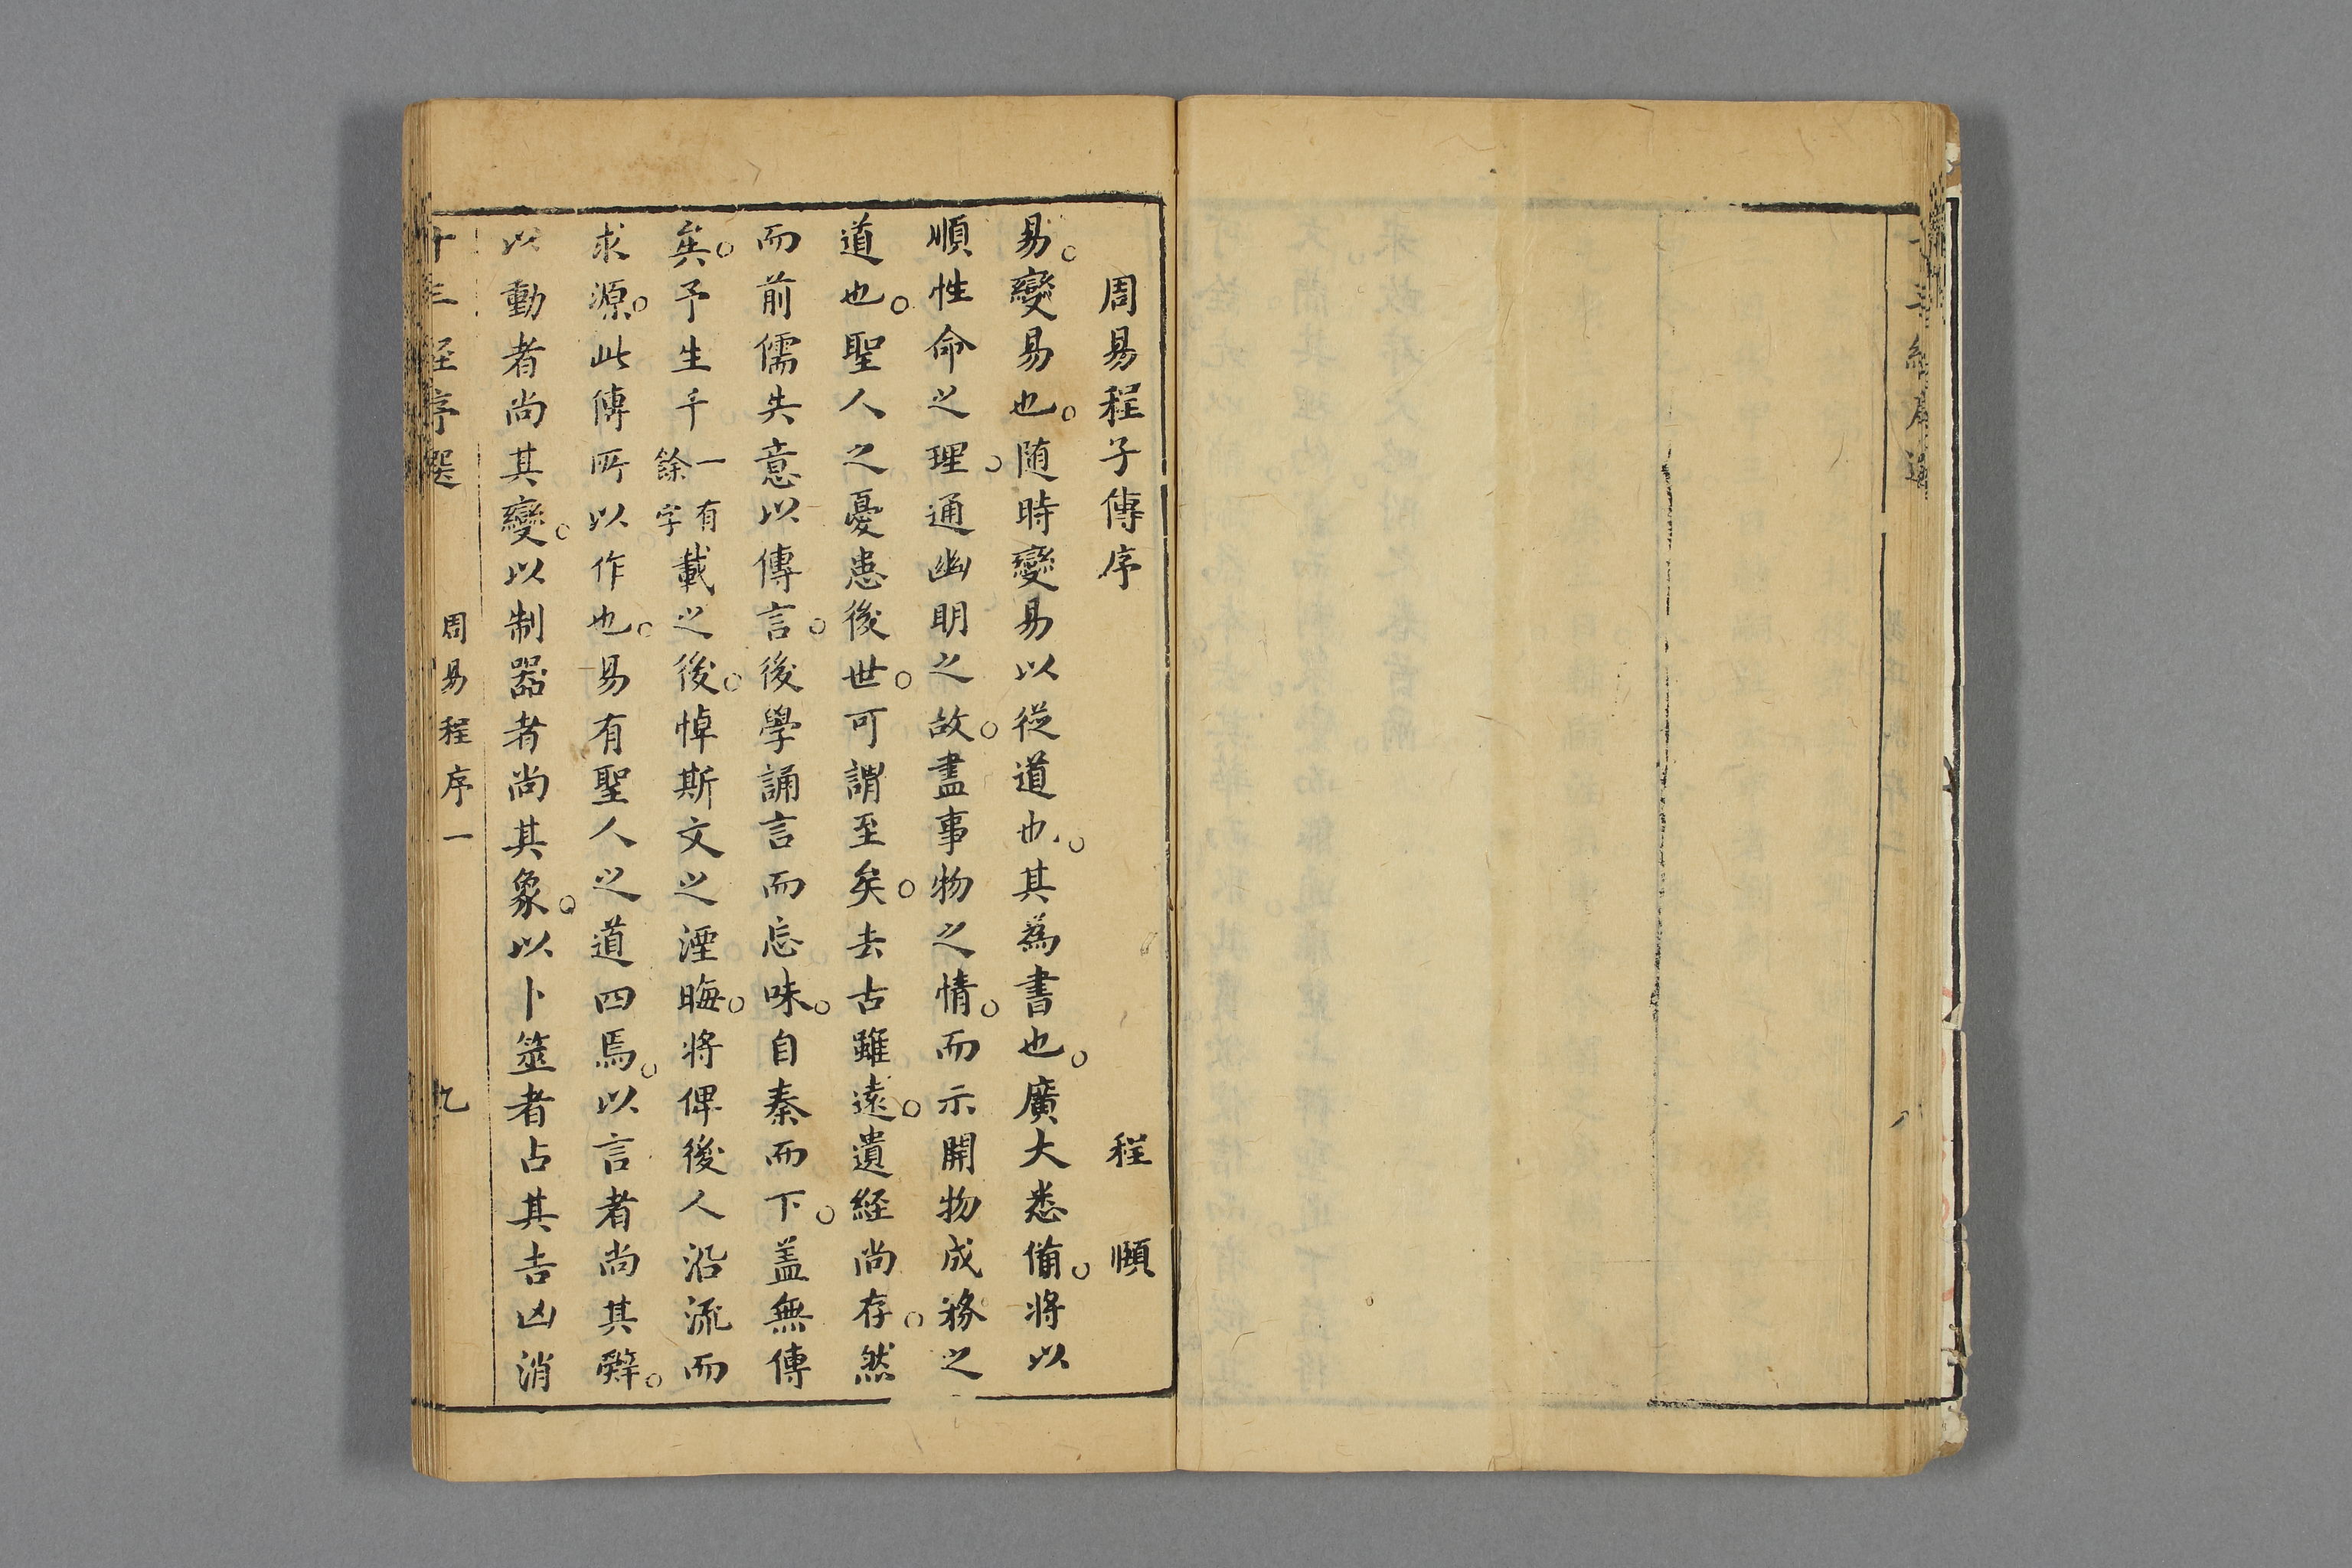 周易程子傳序 程頤
易。變易也。随時變易以從道也。其為書也。廣大悉備。將以
順性命之理。通幽明之故。盡事物之情。而示開物成務之
道也。聖人之憂患後世。可謂至矣。去古雖遠。遺經尚存。然
而前儒失意以傳言。後學誦言而忘味。自秦而下。盖無傳
矣。予生千一有餘字載之後。悼斯文之湮晦。將俾後人沿流而
求源。此傳所以作也。易有聖人之道四焉。以言者尚其辭。
以動者尚其變。以制器者尚其象。以卜筮者占其吉凶消
十三經序選 周易程序一